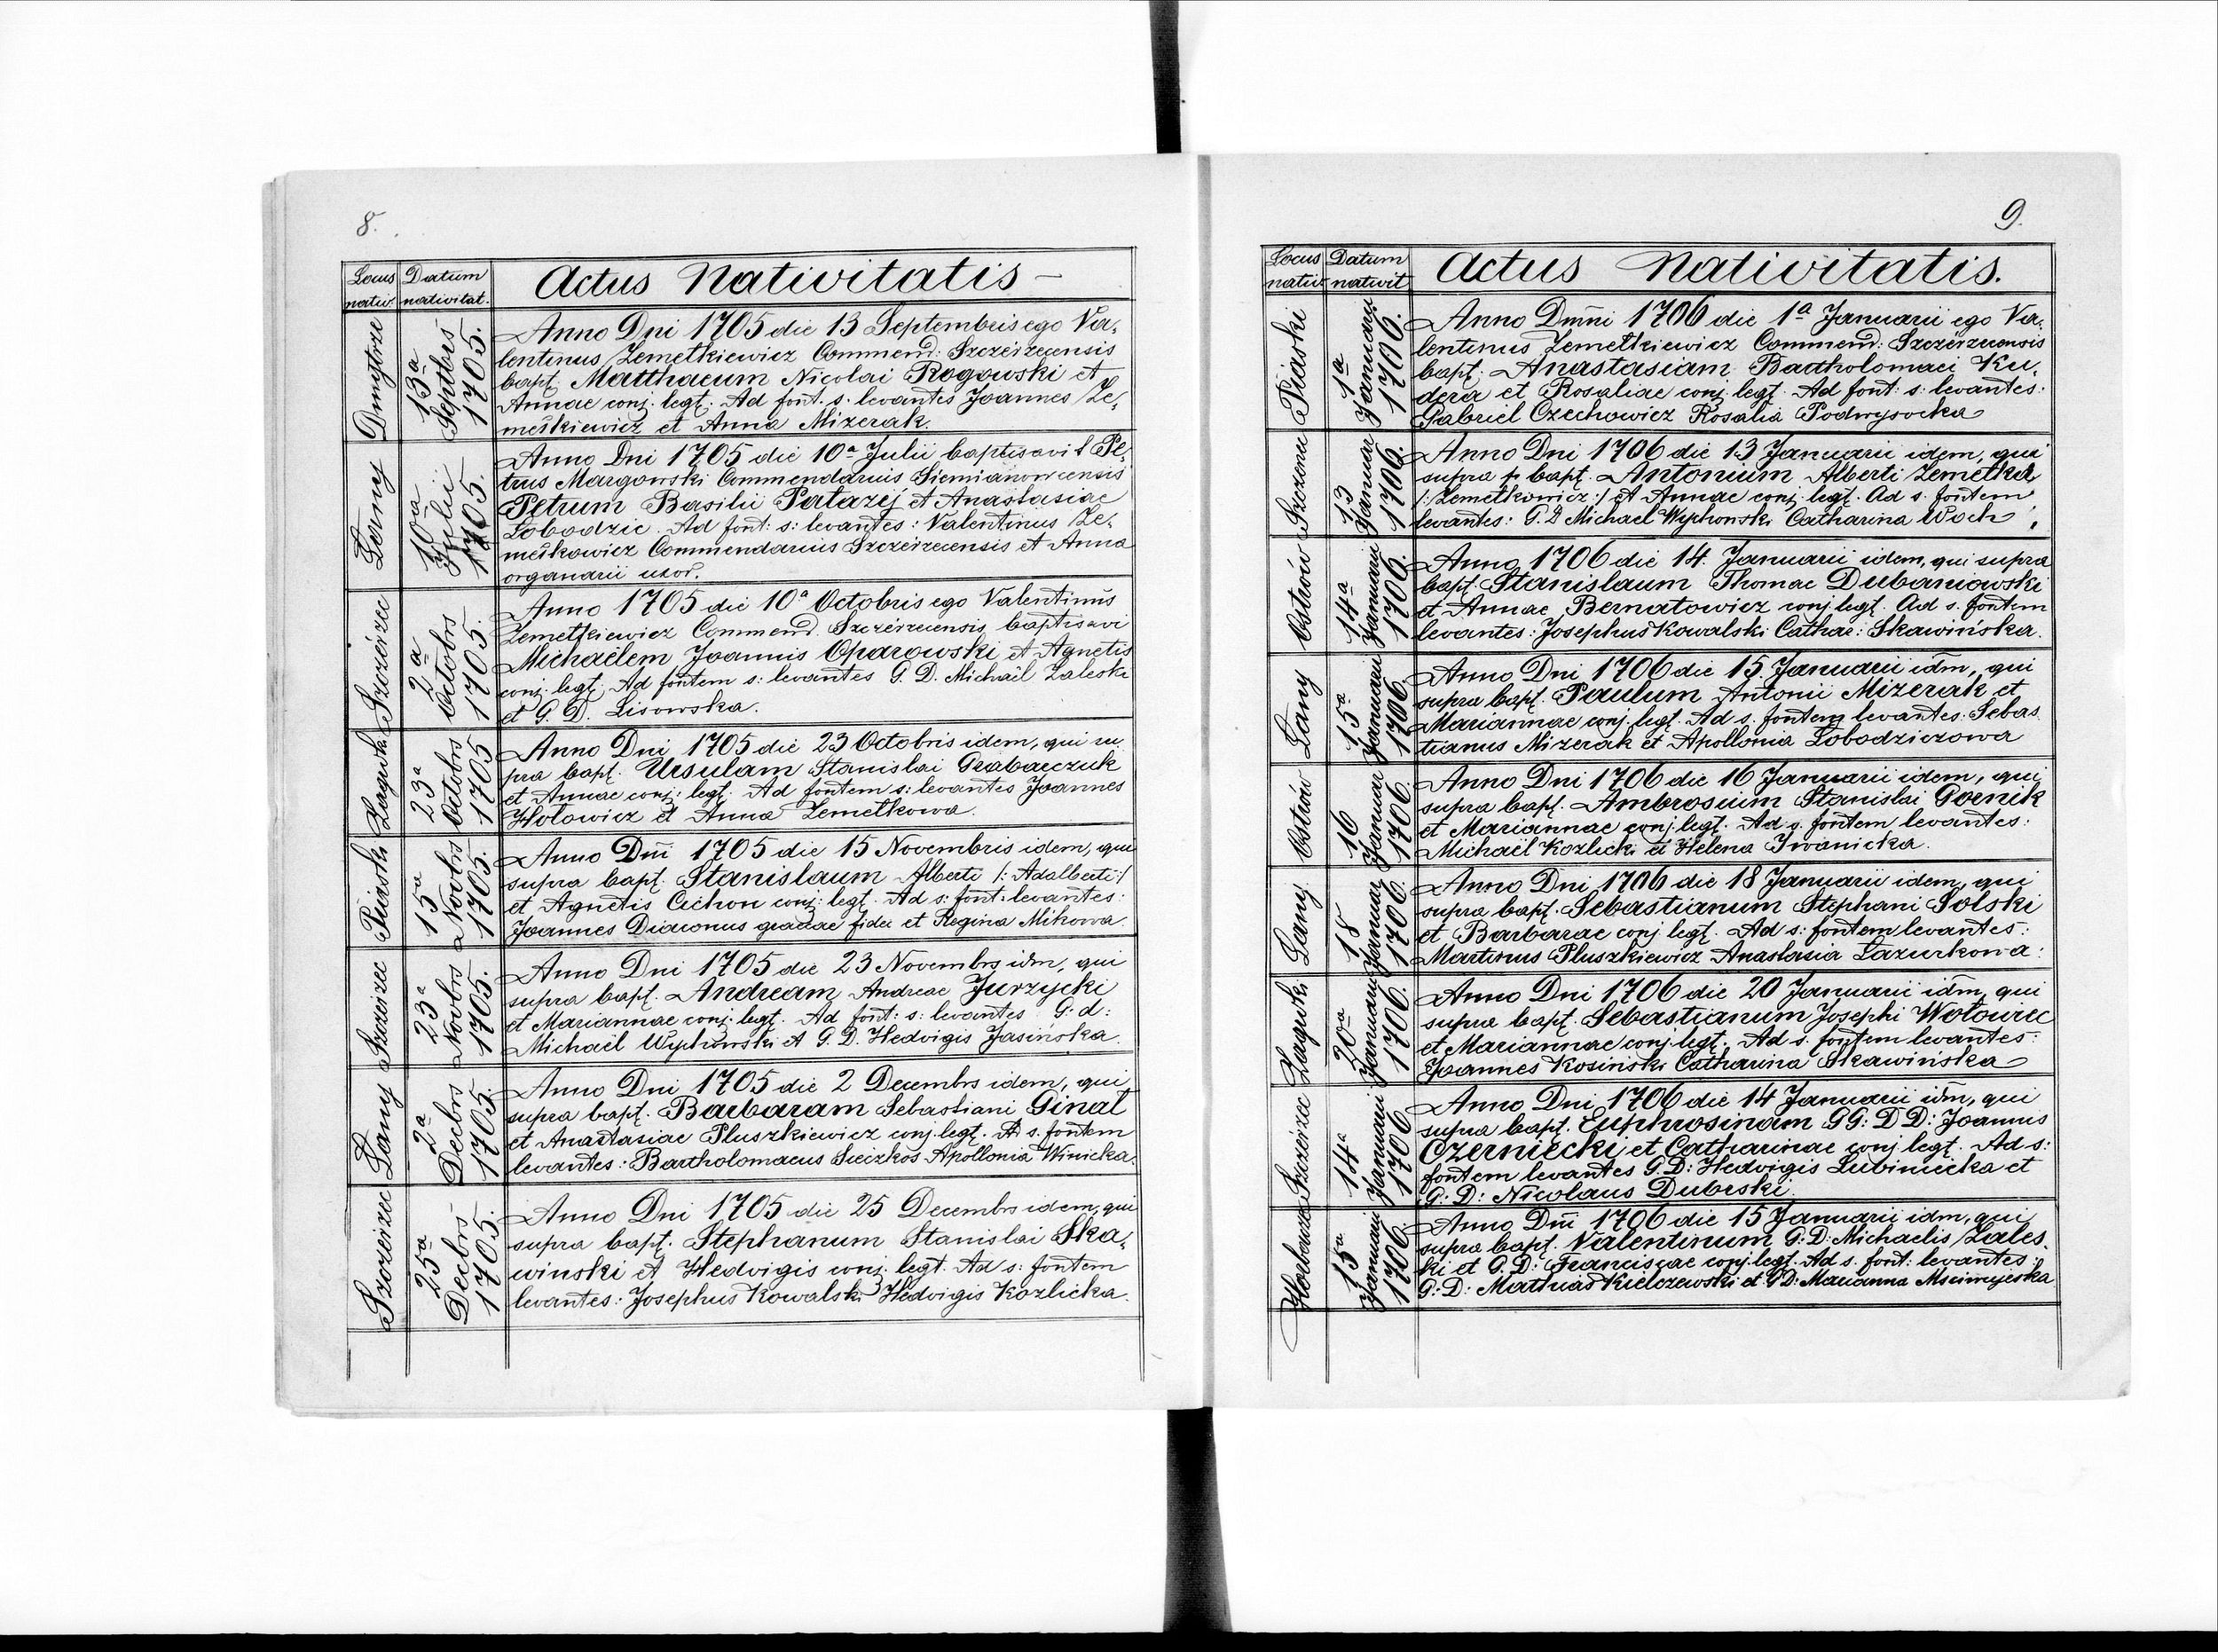 8.
Locus nativ.
Datum nativitat.
Actus Nativitatis –
Dmytrze
13a Septbris 1705.
Anno Dni 1705 die 13 Septembris ego Va,
lentinus Zemetkiewicz Commend: Szczérzecensis
bapt. Matthaeum Nicolai Rogowski et
Annae conj. legt. Ad font. s. levantes Joannes Ze,
metkiewicz et Anna Mizerak.
Łany
10a Julii 1705.
Anno Dni 1705 die 10a Julii baptisavit Pe,
trus Margowski Commendarius Siemianowcensis
Petrum Basilii Patazej et Anastasiae
Łobodzic. Ad font: s: levantes: Valentinus Ze,
metkowicz Commendarius Szczérzecensis et Anna
organarii uxor.
Szczérzec
2a Octobrs 1705.
Anno 1705 die 10a Octobris ego Valentinus
Zemetkiewicz Commend. Szczérzecensis baptisavi
Michaëlem Joannis Oparowski et Agnetis
conj. legt. Ad fontem s: levantes G. D. Michaël Zaleski
et G. D. Lisowska.
Zagwdz
23a Octobrs 1705
Anno Dni 1705 die 23 Octobris idem, qui su
pra bapt. Ursulam Stanislai Grabarczuk
et Annae conj: legt. Ad fontem s: levantes Joannes
Hołowicz et Anna Zemetkowa.
Piaski
15a Novbrs 1705.
Anno Dni 1705 die 15 Novembris idem, qui
supra bapt. Stanislaum Alberti /: Adalberti:/
et Agnetis Cichon conj: legt. Ad s: font: levantes:
Joannes Diaconus graecae fidei et Regina Mikowa.
Szczérzec
23a Novbrs 1705.
Anno Dni 1705 die 23 Novembrs idm, qui
supra bapt. Andream Andreae Jurzycki
et Mariannae conj: legt. Ad font: s: levantes G: d:
Michaël Wyphowski et G. D. Hedvigis Jasińska.
Łany
2a Decbrs 1705.
Anno Dni 1705 die 2 Decembrs idem, qui
supra bapt. Barbaram Sebastiani Ginal
et Anastasiae Pluszkiewicz conj. legt. Ad s. fontem
levantes: Bartholomaeus Swizkos Apollonia Winicka.
Szczérzec
25a Decbrs 1705.
Anno Dni 1705 die 25 Decembrs idem, qui
supra bapt. Stephanum Stanislai Ska,
winski et Hedvigis conj: legt. Ad s: fontem
levantes: Josephus Kowalski Hedvigis Kozlicka.
9.
Locus nativ.
Datum nativit.
Actus Nativitatis.
Piaski
1a Januarii 1706.
Anno Dmni 1706 die 1a Januarii ego Va,
lentinus Zemetkiewicz Commend: Szczérzecensis
bapt. Anastasiam Bartholomaei Ku,
dera et Rosaliae conj. legt. Ad font: s: levantes:
Gabriel Czechowicz Rosalia Podwysocka
13 Januar 1706.
Anno Dni 1706 die 13 Januarii idem, qui
supra p bapt. Antonium Alberti Zemetka
/: Zemetkowicz:/ et Annae conj. legt. Ad s. fontem
levantes: G. D Michael Wyphowski Catharina Woch.
Ostrów
14a Januarii 1706.
Anno 1706 die 14. Januarii idem, qui supra
bapt. Stanislaum Thomae Dubaniowski
et Annae Bernatowicz conj. legt. Ad s. fontem
levantes: Josephus Kowalski Cathar: Skawińska.
Łany
15a Januarii 1706.
Anno Dni 1706 die 15. Januarii idm, qui
supra bapt. Paulum Antonii Mizerak et
Mariannae conj. legt. Ad s. fontem levantes: Sebas
tianus Mizerak et Apollonia Łobodziczowa
Ostrów
16 Januar 1706.
Anno Dni 1706 die 16 Januarii idem, qui
supra bapt. Ambrosium Stanislai Gornik
et Mariannae conj. legt. Ad s. fontem levantes:
Michaël Kozlicki et Helena Iwanicka.
Łany
18 Januar 1706.
Anno Dni 1706 die 18 Januarii idem, qui
supra bapt. Sebastianum Stephani Solski
et Barbarae conj legt. Ad s: fontem levantes:
Martinus Pluszkiewicz Anastasia Lazurkowa:
Zagwdz
20a Januarii 1706.
Anno Dni 1706 die 20 Januarii idm, qui
supra bapt. Sebastianum Josephi Wołowiec
et Mariannae conj. legt. Ad s. fontem levantes:
Joannes Kosiński Catharina Skawińska
Szczérzec
14a Januarii 1706.
Anno Dni 1706 die 14 Januarii idm, qui
supra bapt. Euphrosinam GG: D D: Joannis
Czerniecki et Catharinae conj legt. Ad s:
fontem levantes G. D: Hedvigis Lubiniecka et
G: D: Nicolaus Dubrski.
Horbacze
15a Januarii 1706.
Anno Dni 1706 die 15 Januarii idm, qui
supra bapt. Valentinum G: D: Michaelis Zales
ki et G. D: Franciscae conj. legt. Ad s. font: levantes:
G: D: Mathias Kielczewski et G D: Marianna